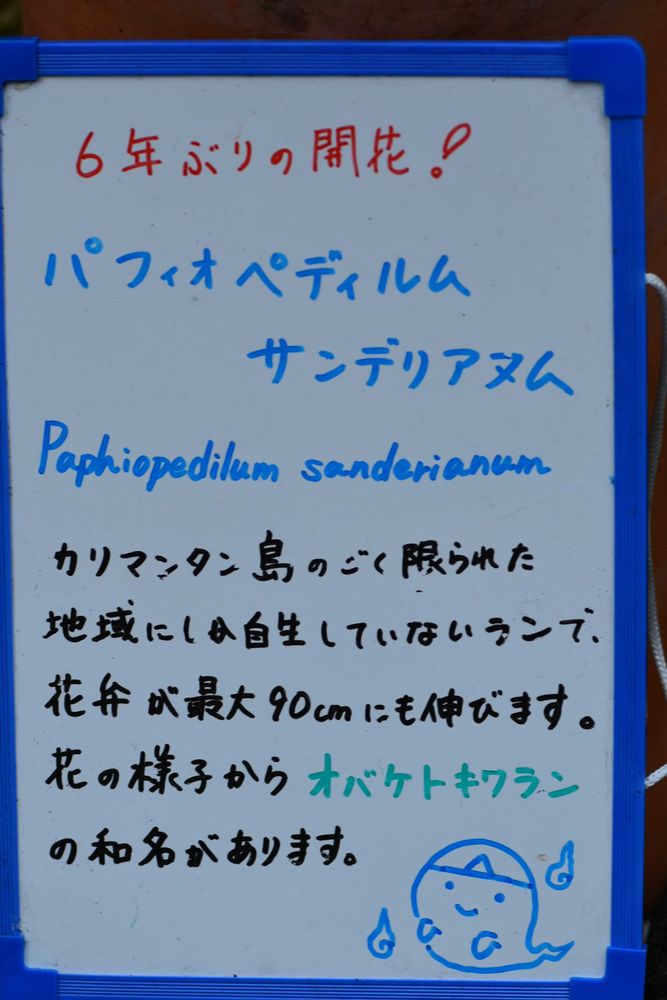 6年ぶりの開花!
パフィオペディルム
サンデリアヌム
Paphiopedilum sanderianum
カリマンタン島のごく限られた
地域にしか自生していないランで、
花弁が最大90cmにも伸びます。
花の様子からオバケトキワラン
の和名があります。